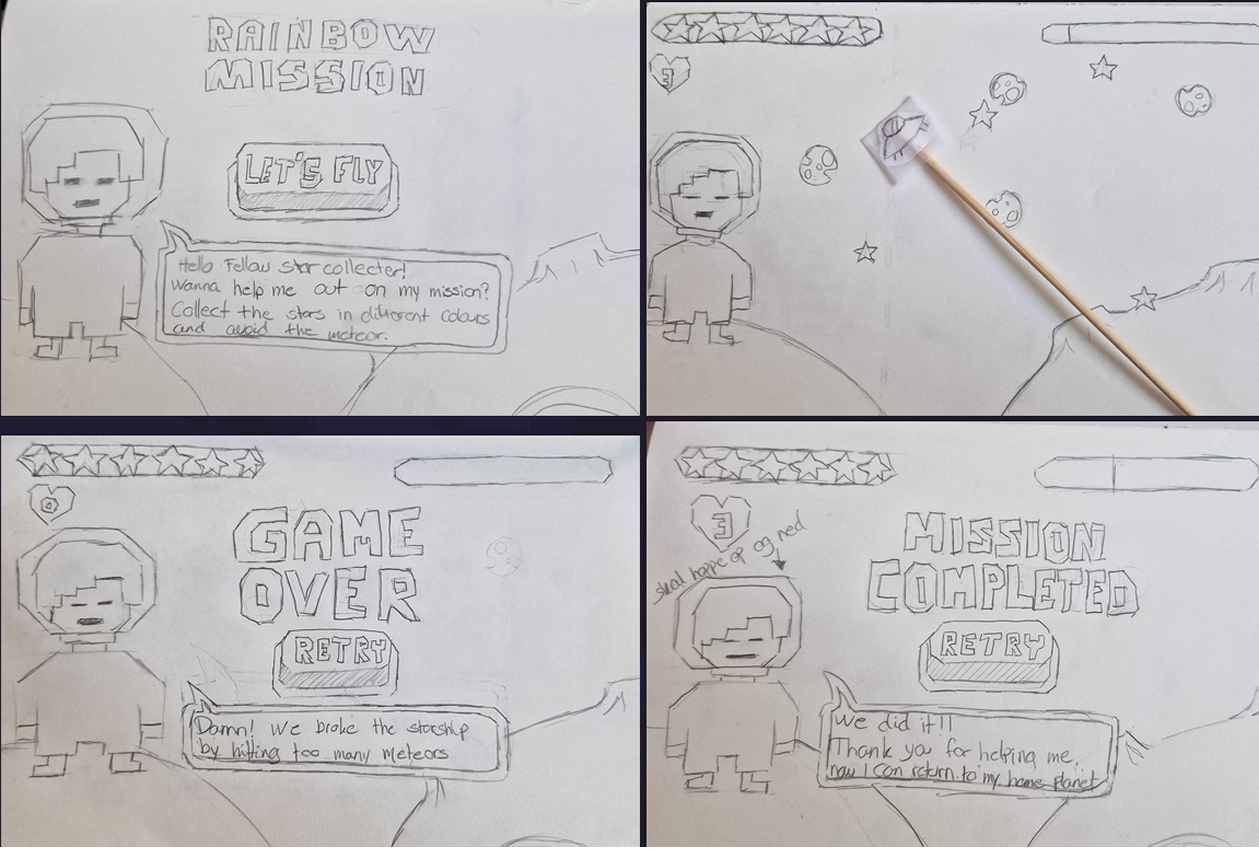 RAINBOW
MISSION
LET'S FLY
Hello Fellow star collecter!
Wanna help me out on my mission?
Collect the stars in different colours
and avoid the meteor.
3
0
GAME
OVER
RETRY
Damn! We broke the starship
by hitting too many meteors
3
skal hoppe op og ned
MISSION
COMPLETED
RETRY
We did it!!
Thank you for helping me,
now I can return to my home planet